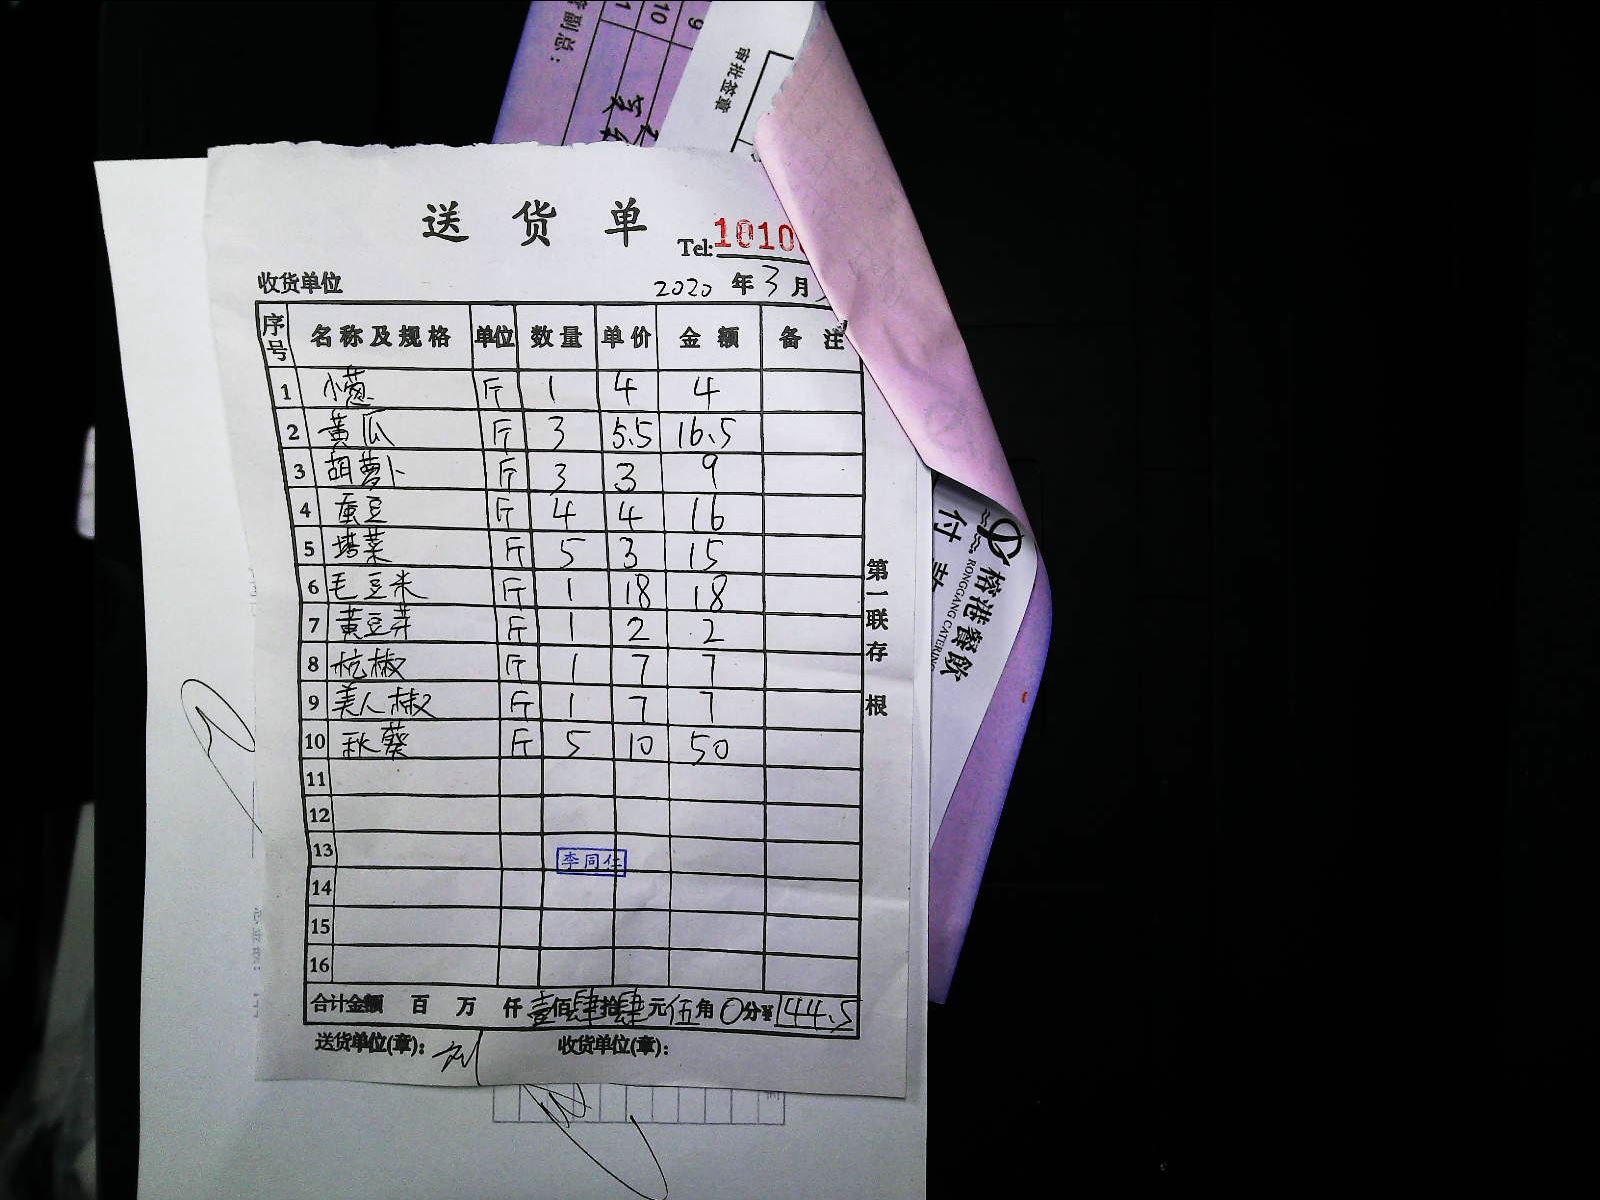 副总：
11
10
9
审批签章
送货单
Tel: 1010
收货单位
2020年3月
序号 名称及规格 单位 数量 单价 金额 备注
1 小葱 斤 1 4 4
2 黄瓜 斤 3 5.5 16.5
3 胡萝卜 斤 3 3 9
4 蚕豆 斤 4 4 16
5 塔菜 斤 5 3 15
6 毛豆米 斤 1 18 18
7 黄豆芽 斤 1 2 2
8 杭椒 斤 1 7 7
9 美人椒 斤 1 7 7
10 秋葵 斤 5 10 50
11
12
13
李同仕
14
15
16
合计金额 百 万 仟 壹佰肆拾肆元伍角0分¥144.5
送货单位(章)： 刘 收货单位(章)：
第一联存根
榕港餐飲
RONGGANG CATERING
付